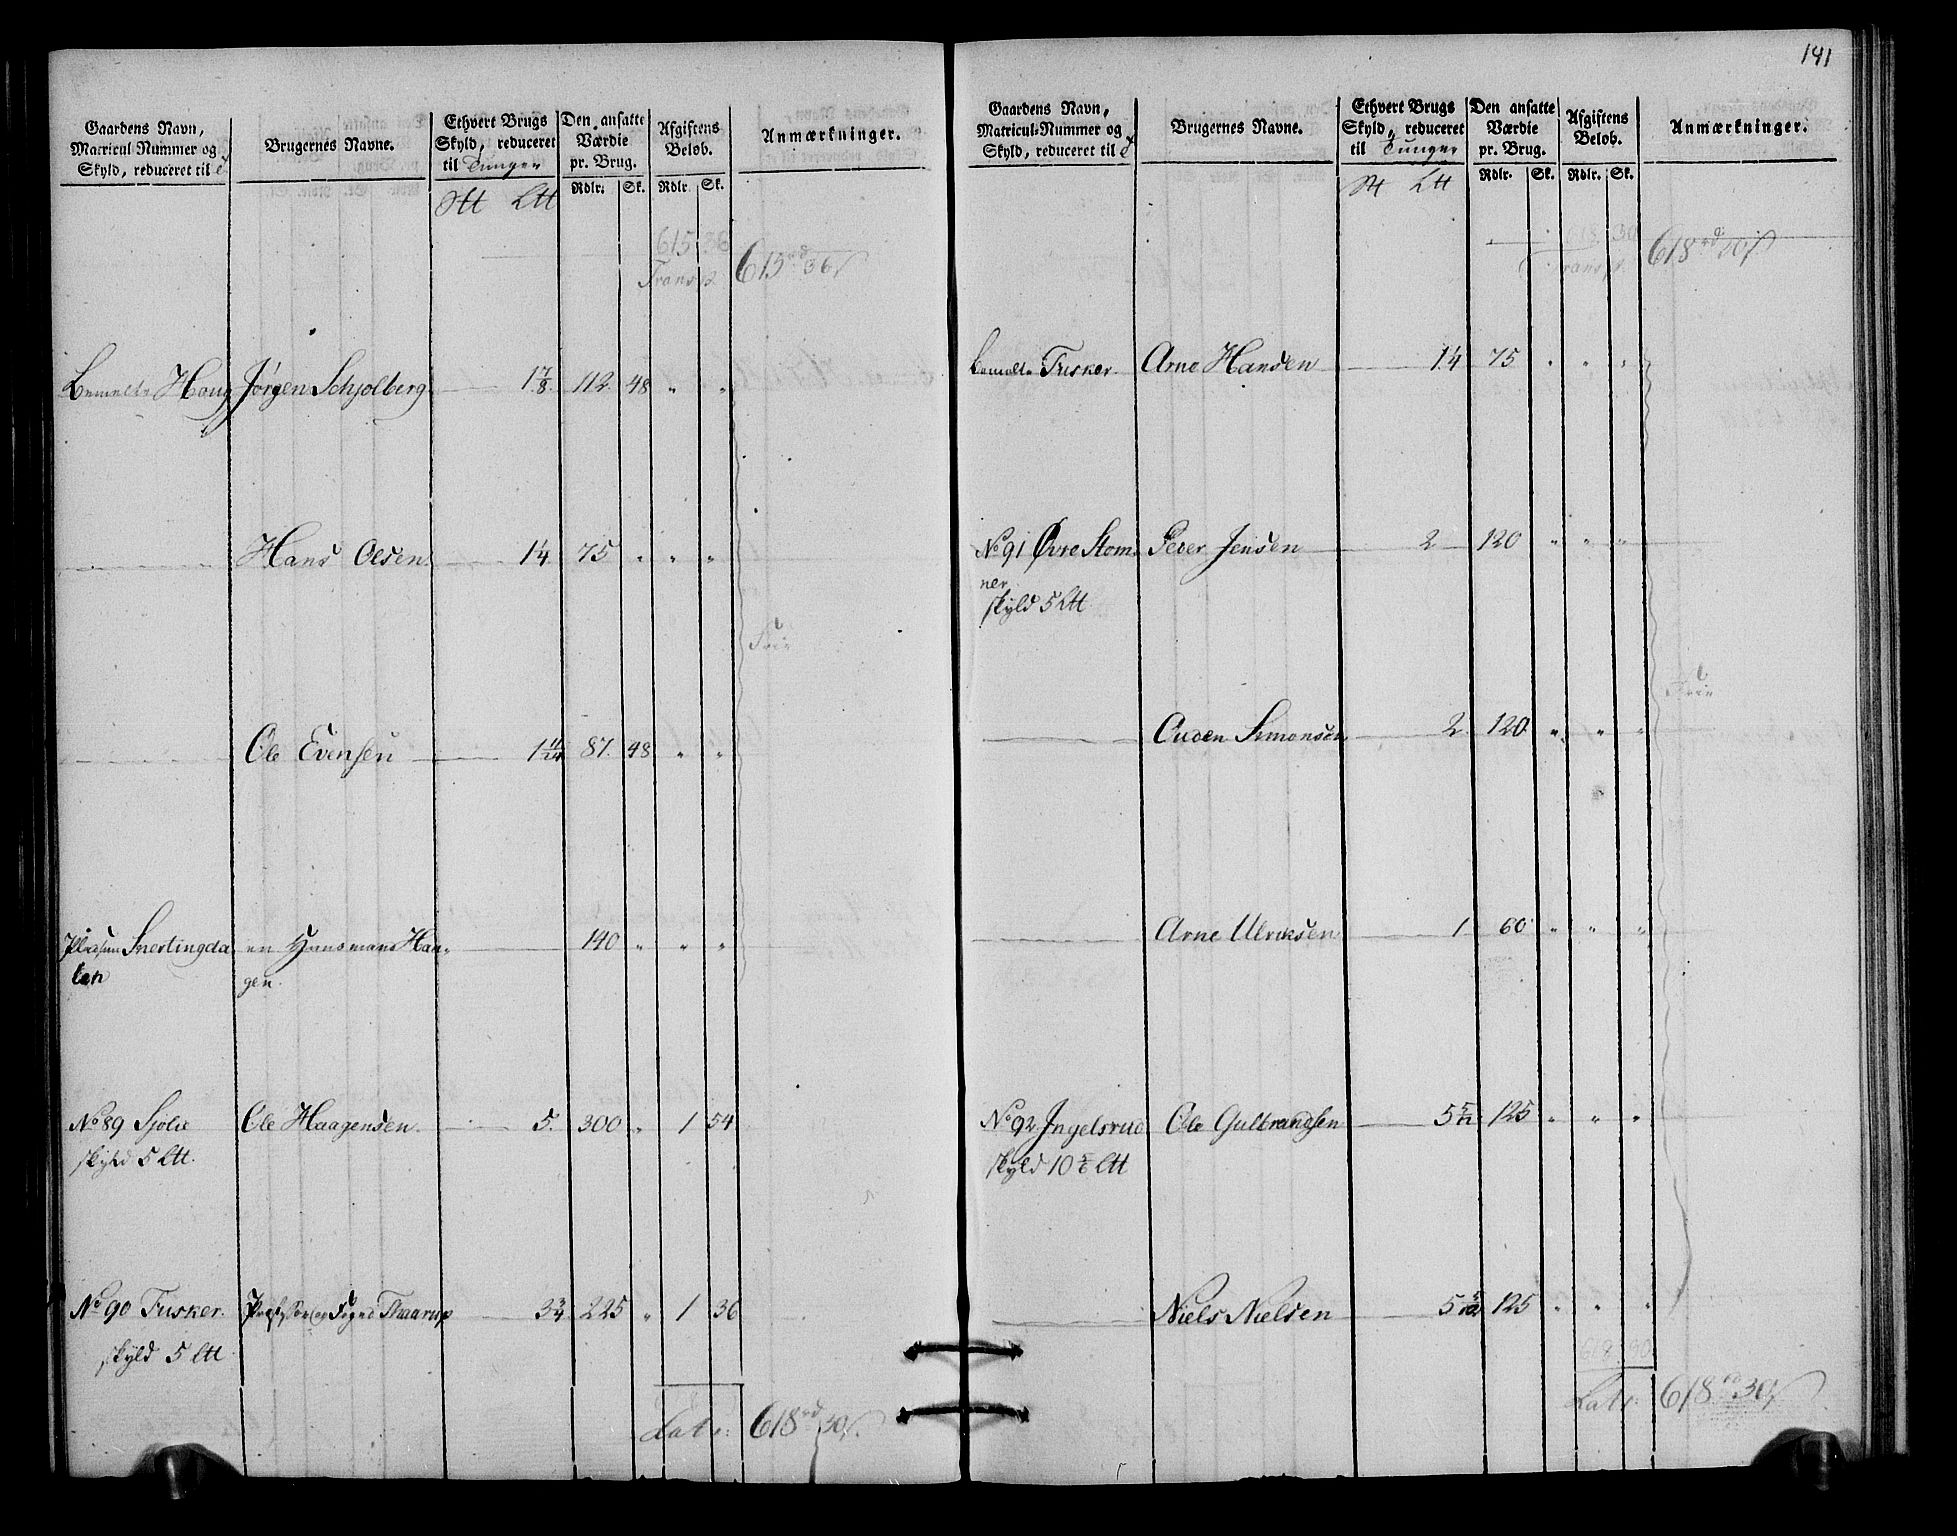 141
Gaardens Navn,
Matricul Nummer og
Skyld, reduceret til
Brugernes Navne.
Ethvert Brugs
Skyld, reduceret
til Tunger
Den ansatte
Værdie
pr. Brug.
Afgiftens
Beløb.
Anmærkninger.
Rdlr. Sk. Rdlr. Sk.
Ltt
615 36
Transp. 615 rd 36 s
Bemelte Houg Jørgen Schjolberg 1 7/8 112 48 " "
Hans Olsen 1 1/4 75 " " "
Frie
Ole Evensen 1 11/24 87 48 " "
Pladsen Snertingda en Huusmand Haa- 140 " " "
len gen.
No 89 Sjolie Ole Haagensen 5 300 " 1 54
skyld 5 Ltt.
No 90 Tusker Thaarup 3 3/4 225 " 1 36
skyld 5 Ltt
Lats. 618 rd 30 s.
Gaardens Navn,
Matricul-Nummer og
Skyld, reduceret til
Brugernes Navne.
Ethvert Brugs
Skyld, reduceret
til Tunger
Den ansatte
Værdie
pr. Brug.
Afgiftens
Beløb.
Anmærkninger.
Rdlr. Sk. Rdlr. Sk.
Ltt
618 30
Transp. 618 rd 30 s
Bemelte Tusker Arne Hansen 1 1/4 75 " " "
No 91 Øvre Stom- Peder Jensen 2 120 " " "
ner
skyld 5 Ltt
Frie
Auden Simonsen 2 120 " " "
Arne Ulriksen 1 60 " " "
No 92 Ingelsrud Ole Gulbrandsen 5 5/12 125 " " "
skyld 10 5/6 Ltt
Niels Nielsen 5 5/12 125 " " "
618 30
Lats. 618 rd 30 s